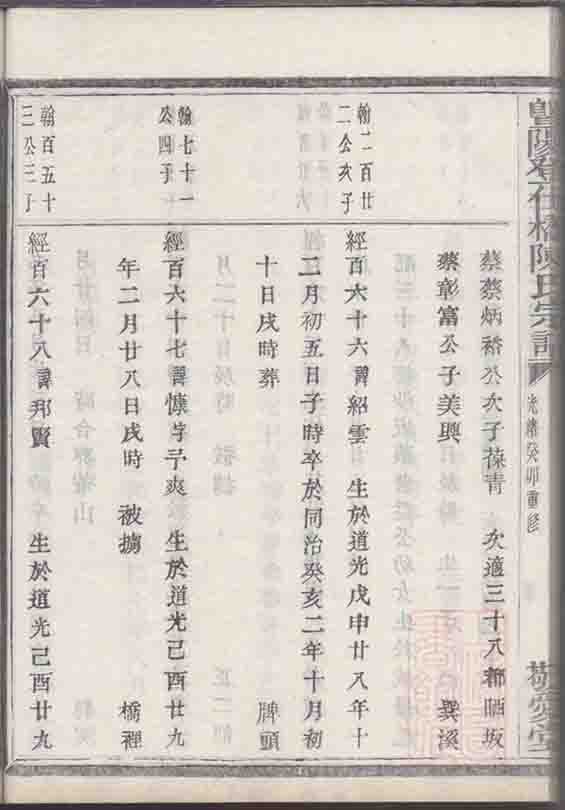 暨陽
橋陳氏宗譜
光緒癸卯重修
敬愛堂
蔡蔡炳
公次子葆青 次適三十八都
坂
蔡彰富公子美興
溪
翰二百廿
二公亥子
經百六十六
紹雲 生於道光戊申廿八年十
二月初五日子時卒於同治癸亥二年十月初
十日戌時葬 牌頭
翰七十一
公四子
經百六十七
慷字予爽 生於道光己酉廿九
年二月廿八日戌時 被擄 橋裡
翰百五十
三公三子
經百六十八
邦賢 生於道光己酉廿九